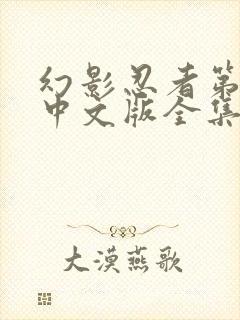 幻影忍者第
中文版全集
大漠燕歌